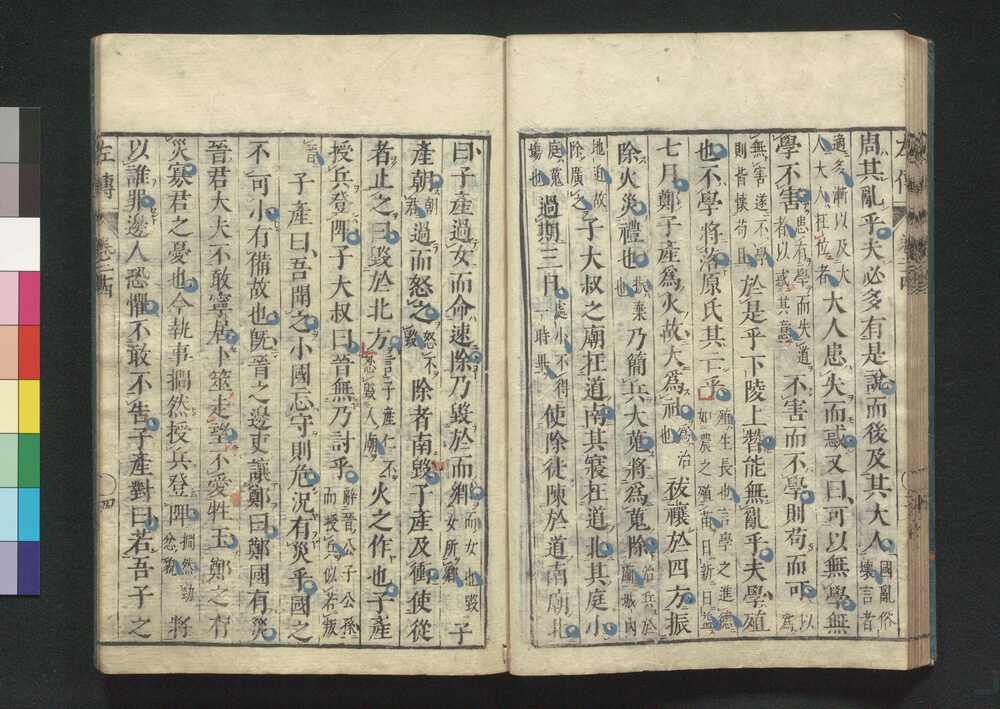 周其亂乎夫必多有是說而後及其大人國亂俗壞言者
適多漸以及大人大人在位者大人患失而惑又曰可以無學無
學不害患有學而失道者以惑其意不害而不學則苟而可以爲
無害遂不學則皆懷苟且於是乎下陵上替能無亂乎夫學殖
也不學將落原氏其亡乎殖生長也言學之進德如農之殖苗日新日益
七月鄭子產爲火故大爲社爲治也祓禳於四方振
除火災禮也振棄也乃簡兵大蒐將爲蒐除治兵於廟城內
地迫故除廣之子大叔之廟在道南其寢在道北其庭小
庭蒐場也過期三日處小不得一時畢使除徒陳於道南廟北
曰子產過女而命速除乃毀於而鄉而女也毀女所鄉子
產朝朝君過而怒之怒不毀除者南毀子產及衝使從
者止之曰毀於北方言子產仁不忍毀人廟火之作也子產
授兵登陴子大叔曰晉無乃討乎辭晉公子公孫而授兵似若叛
晉子產曰吾聞之小國忘守則危況有災乎國之
不可小有備故也既晉之邊吏讓鄭曰鄭國有災
晉君大夫不敢寧居卜筮走望不愛牲玉鄭之有
災寡君之憂也今執事撊然授兵登陴撊然勁忿貌將
以誰罪邊人恐懼不敢不告子產對曰若吾子之
左傳
四